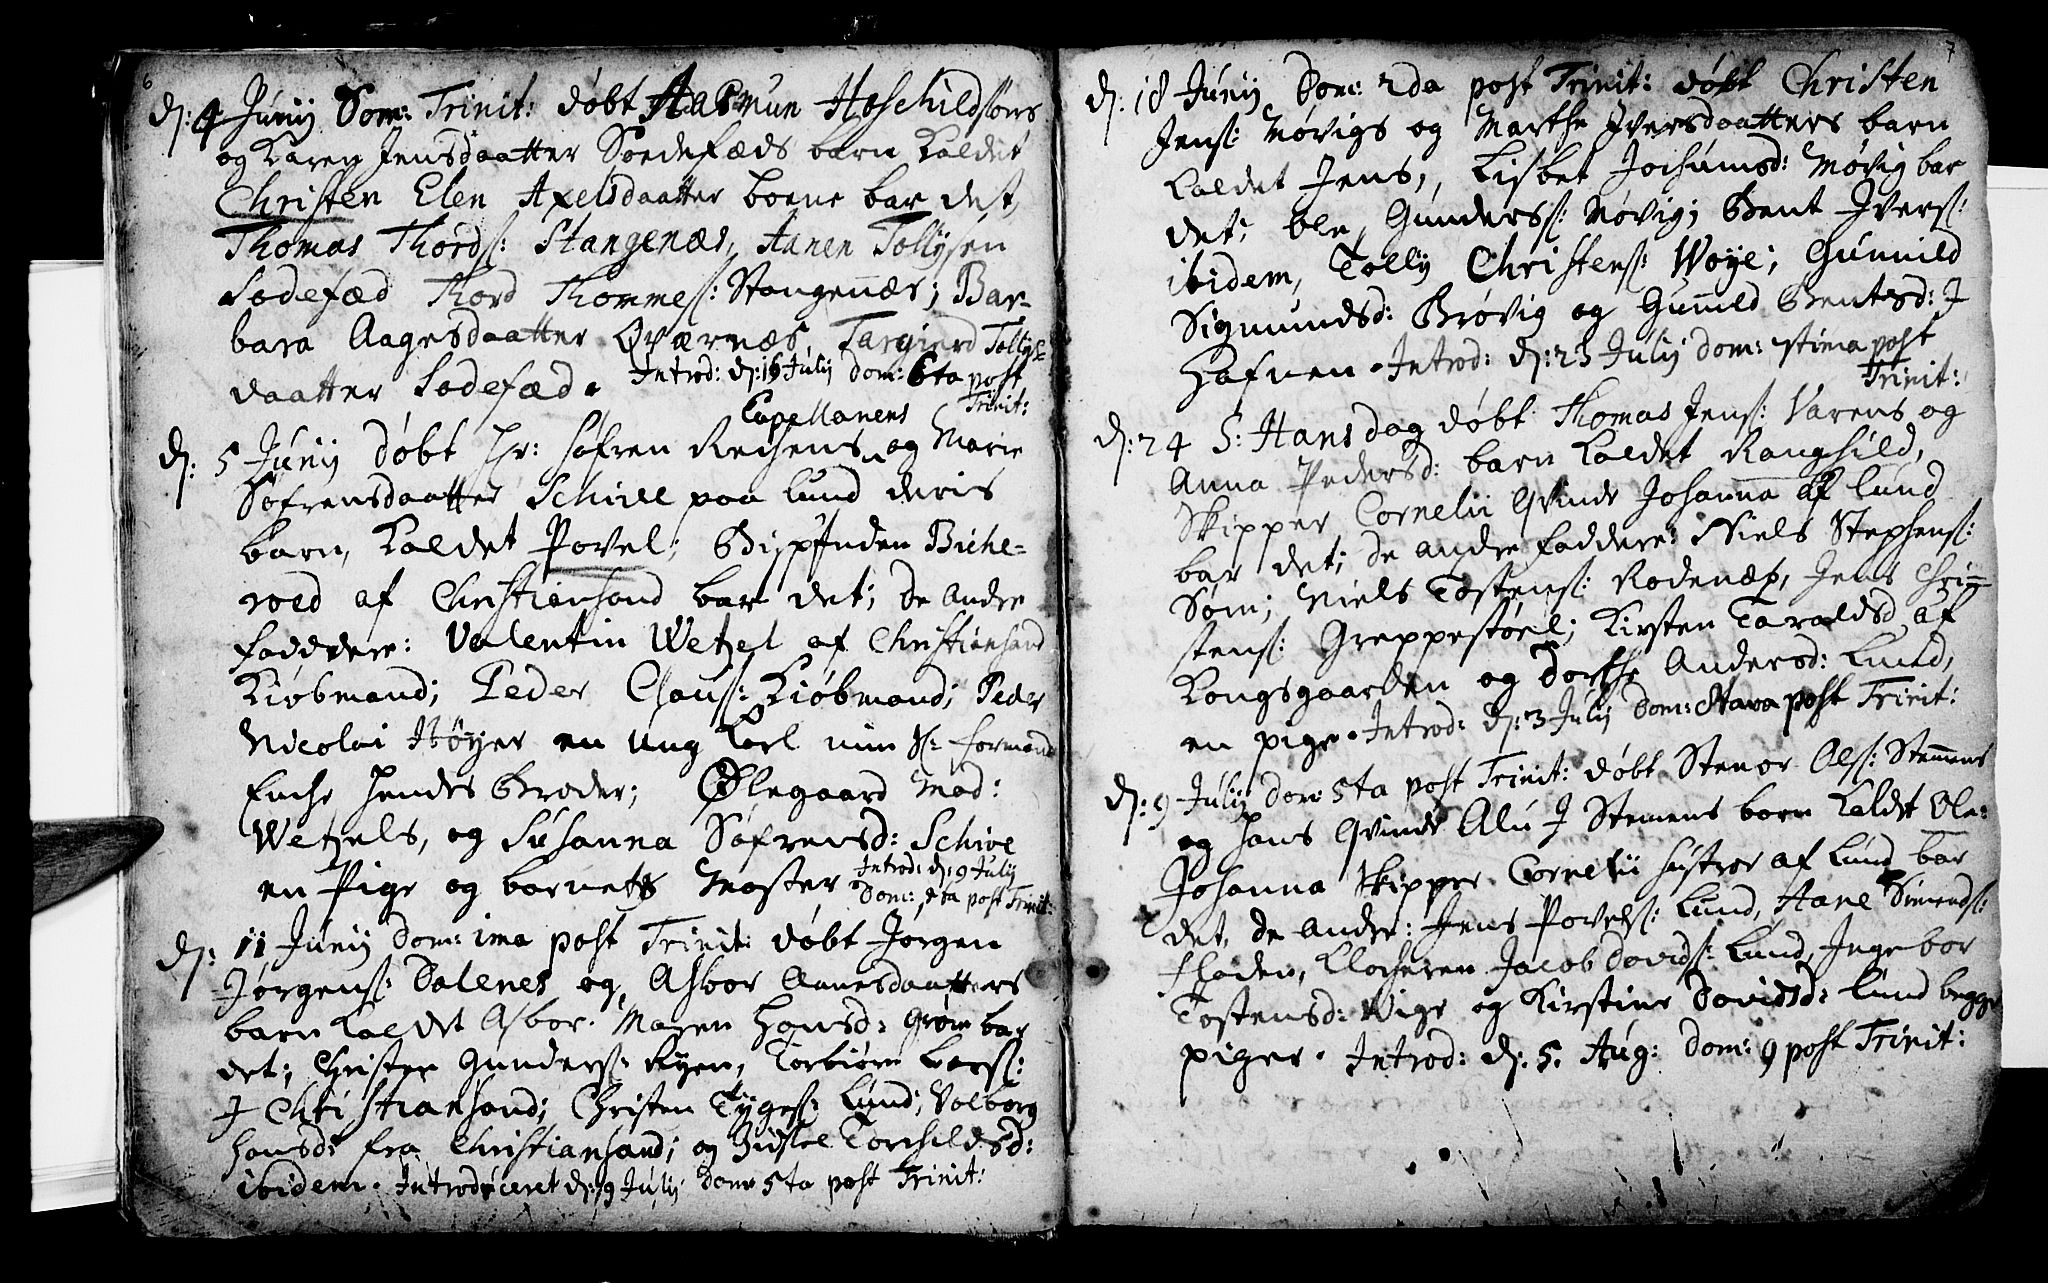 6
d: 4 Junij Dom: Trinit: døbt Aasmun Hoschildsøns
og Karen Jensdaatter Sodefæds barn kaldet
Christen Elen Axelsdaatter boene bar det,
Thomas Thords: Stangenæs, Aanen Tollysen
Sodefæd Thord Thommes: Stangenæs; Bar-
bara Aagesdaatter Øværnæs, Targierd Tollys-
daatter Sodefæd. Introd: d: 16 Julij dom: 6ta post
Trinit:
Capellanens
d: 5 Junij døbt Hr: Søfren og Marie
Søfrensdaatter Schive paa Lund deris
barn, kaldet Povel; Bispinden Biche-
rod af Christiansand bar det; de andre
faddere: Valentin Wetzel af Christiansand
Kiøbmand; Peder Claus: Kiøbmand; Peder
Nicolai Høyer en ung Karl min S: formands
Enche hendes Broder; Ølegaard Mad:
Wetzels, og Susanna Søfrensd: Schive
en Pige og barnets Moster Introd: d: 9 Julij
Dom: 5ta post Trinit:
d: 11 Junij Dom: 1ma post Trinit: døbt Jørgen
Jørgens: Dalenes og Asbor Aanesdaatters
barn kaldet Asbor. Maren Hansd: Grøm bar
det; Christen Gunders: Ryen, Torbiørn Lars:
I Christiansand; Christen Tyges: Lund; Valborg
Hansd: fra Christiansand; og Sidsel Torchildsd:
ibidem. Introduceret d: 9 Julij Dom 5ta post Trinit:
7
d: 18 Junij Dom: 2da post Trinit: døbt Christen
Jens: Møvigs og Marthe Iversdaatters barn
kaldet Jens, Lisbet Jochumsd: Møvig bar
det; Ole Gunders: Møvig; Bent Ivers:
ibidem, Tolly Christens: Woye; Gunnild
Sigmundsd: Brøvig og Gunnild Bentsd: I
Hafnen. Introd: d: 23 Julij dom: 7tima post
Trinit:
d: 24 S: Hans dag døbt Thomas Jens: Varens og
Anna Pedersd: barn kaldet Ranghild,
Skipper Cornelii Qvinde Johanna af Lund
bar det; de andre faddere: Niels Stephens:
Søm; Niels Tostens: Rodenæs, Jens Chri-
stens: Greppestøel; Kirsten Taraldsd af
Kongsgaarden og Dorthe Andersd: Lund,
en pige. Introd: d: 3 Julij Dom: 8tava post Trinit:
d: 9 Julij dom 5ta post Trinit: døbt Stenor Ols: Stemmens
og hans Qvinde I Stemens barn kaldet Ole.
Johanna Skipper Cornelii hustroe af Lund bar
det, de andre: Jens Povels: Lund, Aane Simends:
Floden, Klocheren Jacob Davids: Lund, Ingebor
Tostensd: Wige og Kirstine Davidsd: Lund begge
piger. Introd: d: 5. Aug: Dom: 9 post Trinit: